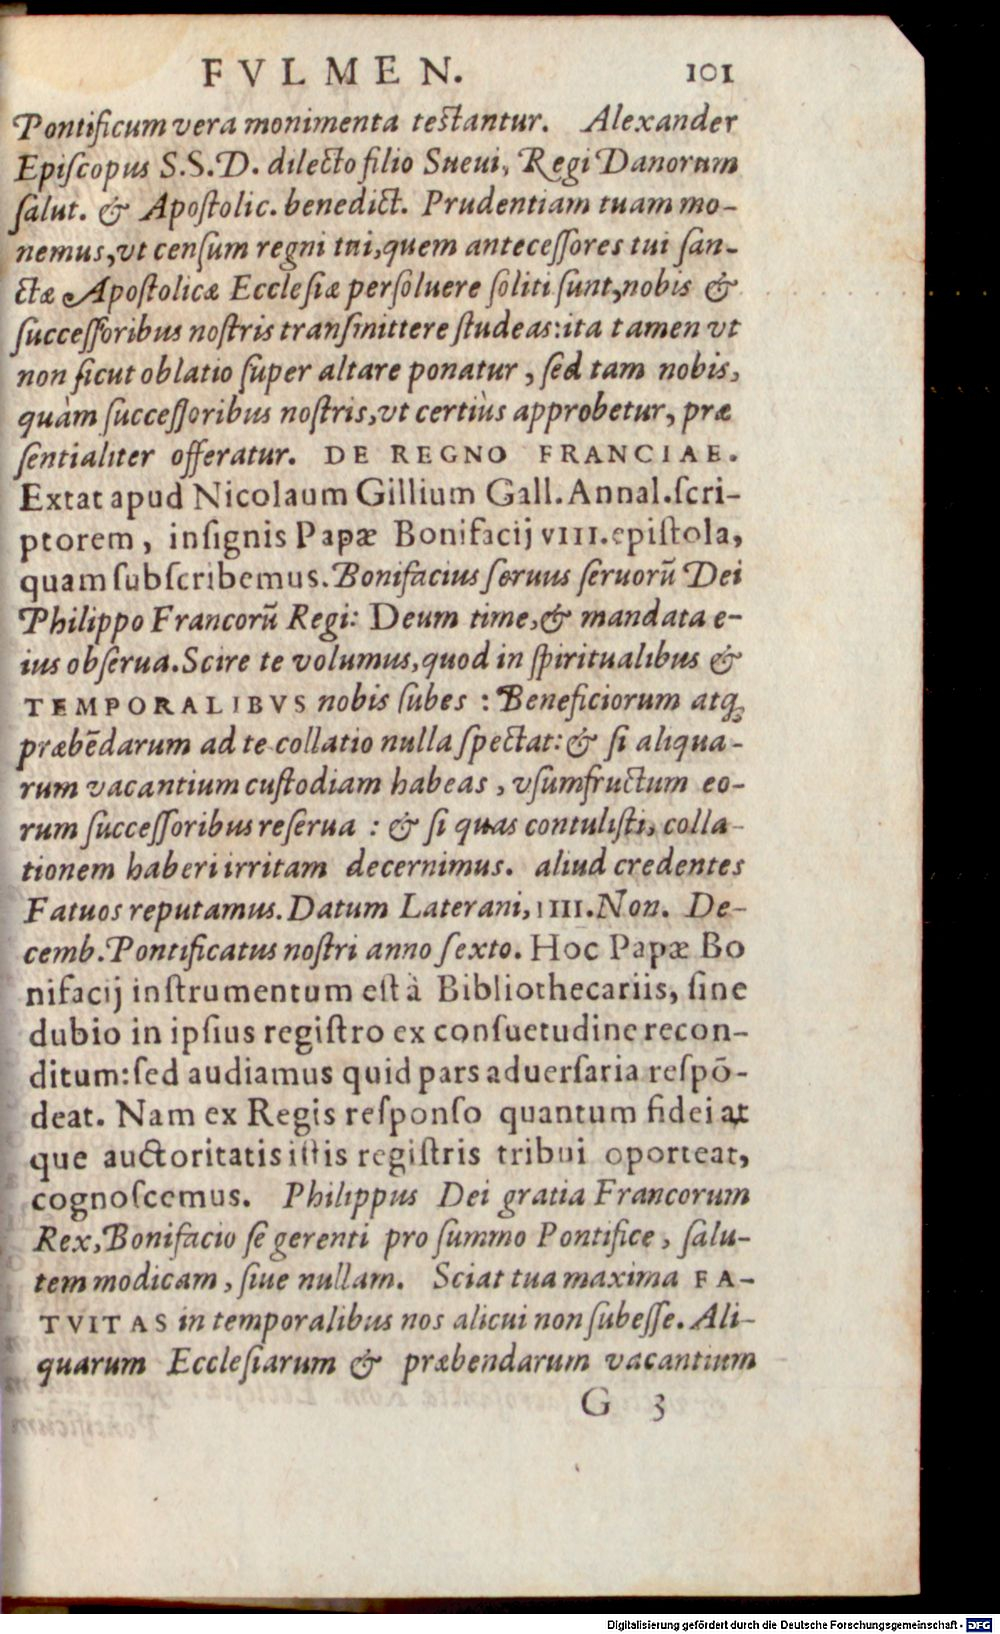 FVLMEN. 101
Pontificum vera monimenta testantur. Alexander
Epiſcopus S.S.D. dilecto filio Sueui, Regi Danorum
ſalut. & Apoſtolic. benedict. Prudentiam tuam mo-
nemus, vt cenſum regni tui, quem anteceſſores tui ſan-
ctæ Apoſtolicæ Eccleſiæ perſoluere ſoliti ſunt, nobis &
ſucceſſoribus noſtris tranſmittere ſtudeas: ita tamen vt
non ſicut oblatio ſuper altare ponatur, ſed tam nobis,
quàm ſucceſſoribus noſtris, vt certiùs approbetur, præ
ſentialiter offeratur. DE REGNO FRANCIAE.
Extat apud Nicolaum Gillium Gall. Annal. ſcri-
ptorem, inſignis Papæ Bonifacij VIII. epiſtola,
quam ſubſcribemus. Bonifacius ſeruus ſeruorũ Dei
Philippo Francorũ Regi: Deum time, & mandata e-
ius obſerua. Scire te volumus, quod in ſpiritualibus &
TEMPORALIBVS nobis ſubes: Beneficiorum atq;
præbẽdarum ad te collatio nulla ſpectat: & ſi aliqua-
rum vacantium cuſtodiam habeas, vſumfructum eo-
rum ſucceſſoribus reſerua: & ſi quas contuliſti, colla-
tionem haberi irritam decernimus. aliud credentes
Fatuos reputamus. Datum Laterani, IIII. Non. De-
cemb. Pontificatus noſtri anno ſexto. Hoc Papæ Bo
nifacij inſtrumentum eſt à Bibliothecariis, ſine
dubio in ipſius regiſtro ex conſuetudine recon-
ditum: ſed audiamus quid pars aduerſaria reſpō-
deat. Nam ex Regis reſponſo quantum fidei at
que auctoritatis iſtis regiſtris tribui oporteat,
cognoſcemus. Philippus Dei gratia Francorum
Rex, Bonifacio ſe gerenti pro ſummo Pontifice, ſalu-
tem modicam, ſiue nullam. Sciat tua maxima FA-
TVITAS in temporalibus nos alicui non ſubeſſe. Ali-
quarum Eccleſiarum & præbendarum vacantium
G 3
Digitalisierung gefördert durch die Deutsche Forschungsgemeinschaft - DFG